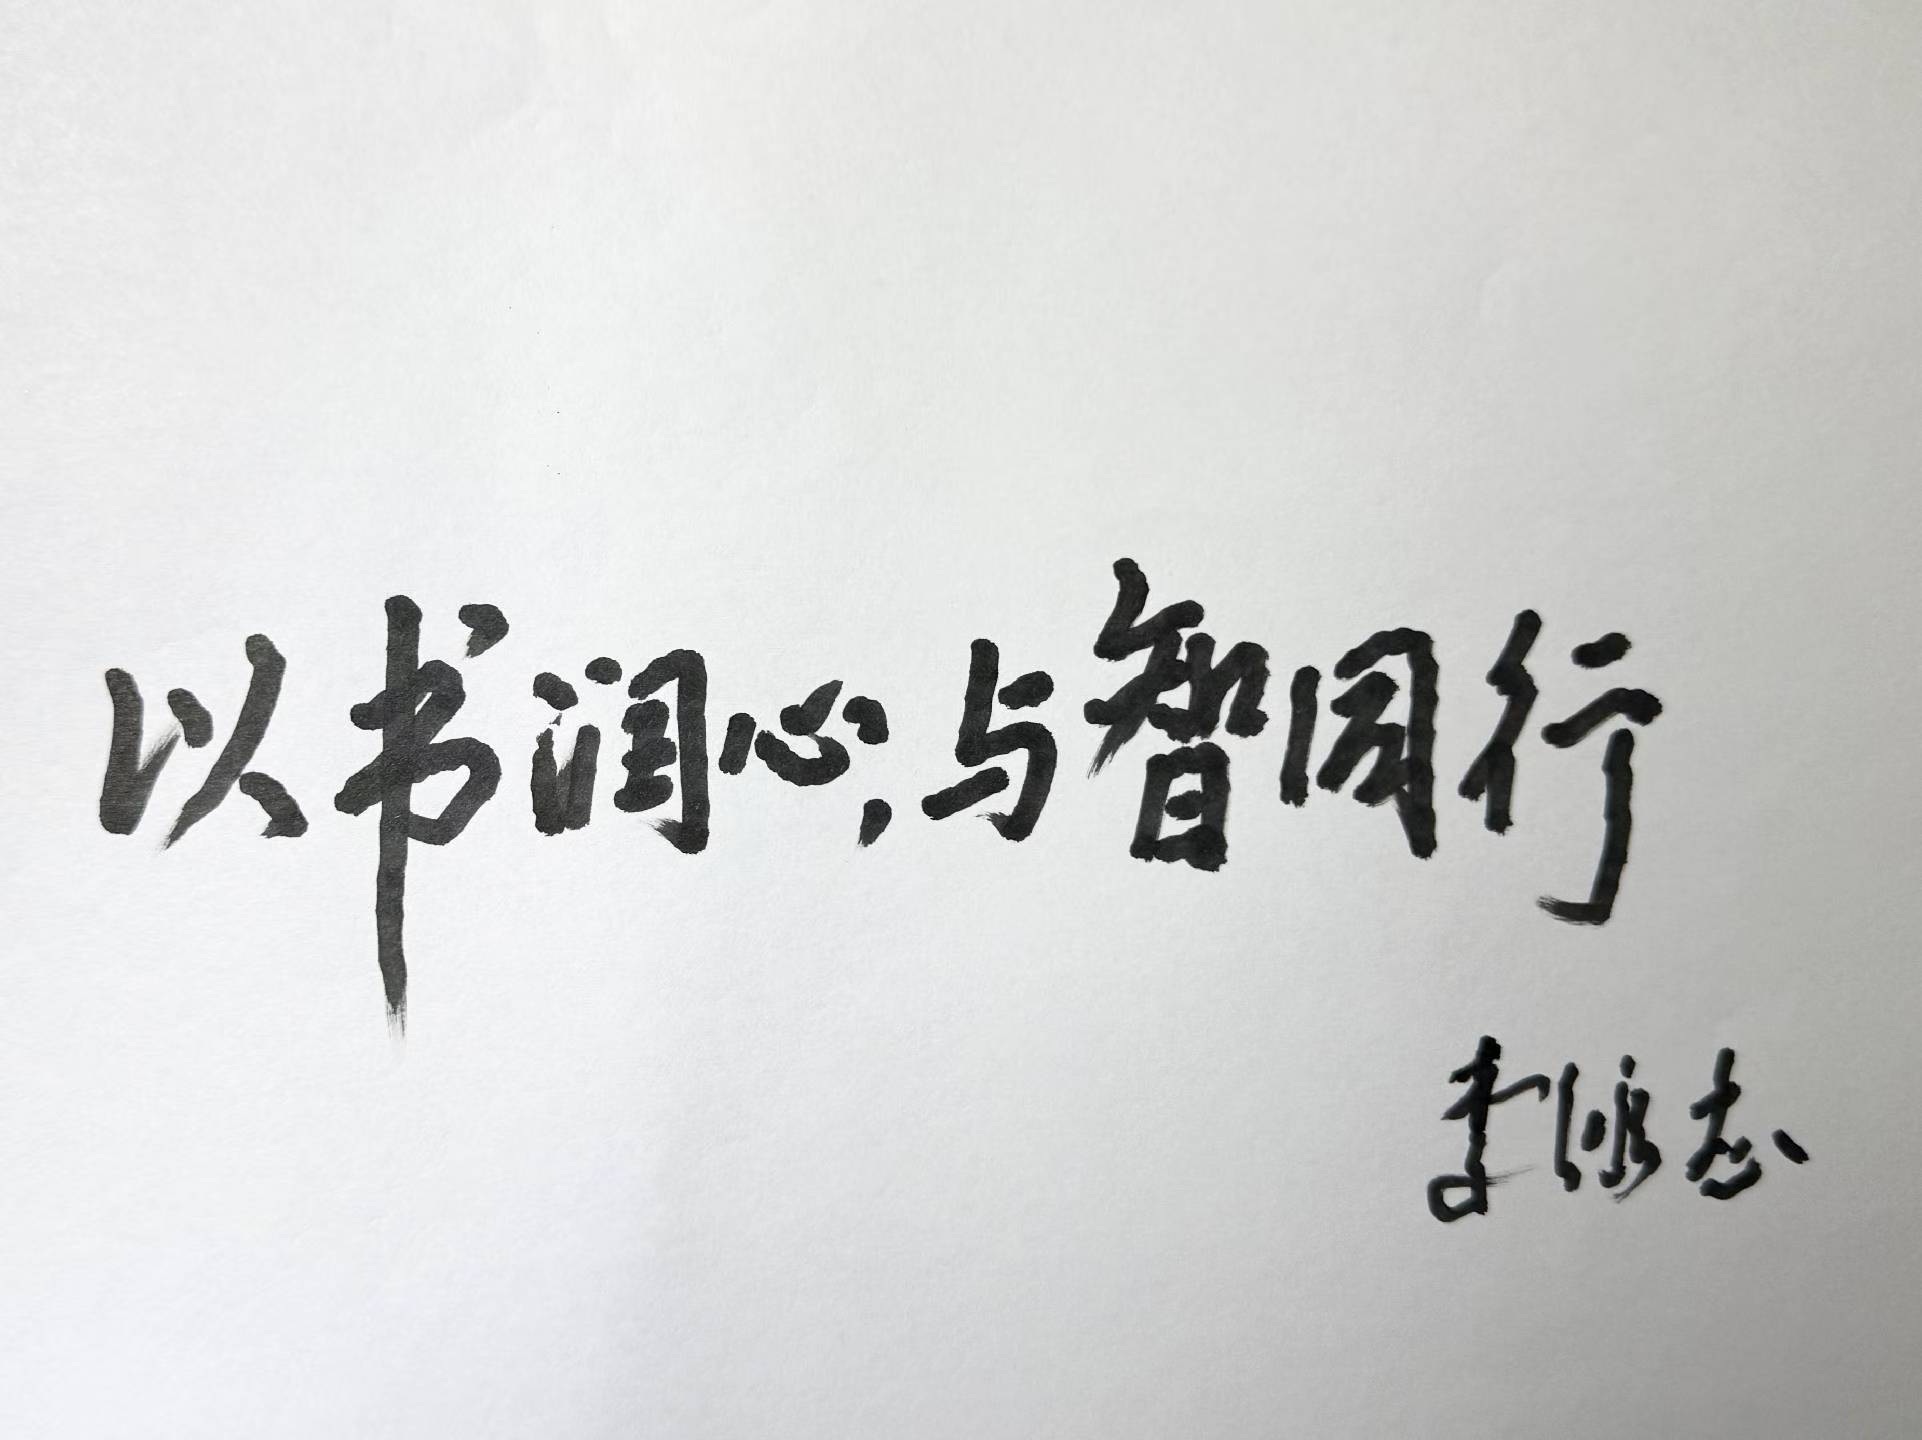 以书润心，与智同行
李
志